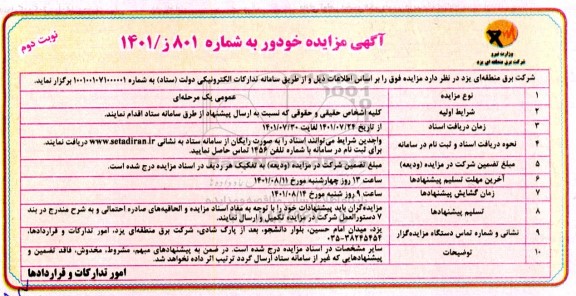 نوبت دوم
آگهی مزایده خودور به شماره ۸۰۱ ز/۱۴۰۱
وزارت نیرو
شرکت برق منطقه ای یزد
شرکت برق منطقه‌ای یزد در نظر دارد مزایده فوق را بر اساس اطلاعات ذیل و از طریق سامانه تدارکات الکترونیکی دولت (ستاد) به شماره ۱۰۰۱۰۰۱۰۷۱۰۰۰۰۰۱ برگزار نماید.
۱ نوع مزایده عمومی یک مرحله‌ای
۲ شرایط اولیه کلیه اشخاص حقیقی و حقوقی که نسبت به ارسال پیشنهاد از طرق سامانه ستاد اقدام نمایند.
۳ زمان دریافت اسناد از تاریخ ۱۴۰۱/۰۷/۲۴ لغایت ۱۴۰۱/۰۷/۳۰
۴ نحوه دریافت اسناد و ثبت نام در سامانه واجدین شرایط می‌توانند اسناد را به صورت رایگان از سامانه ستاد به نشانی www.setadiran.ir دریافت نمایند.
برای ثبت نام در سامانه با شماره تلفن ۱۴۵۶ تماس حاصل نمایید.
۵ مبلغ تضمین شرکت در مزایده (ودیعه) مبلغ تضمین شرکت در مزایده (ودیعه) به تفکیک هر ردیف در اسناد مزایده درج شده است.
۶ آخرین مهلت تسلیم پیشنهادها ساعت ۱۳ روز چهارشنبه مورخ ۱۴۰۱/۰۸/۱۱
۷ زمان گشایش پیشنهادها ساعت ۹ روز شنبه مورخ ۱۴۰۱/۰۸/۱۴
۸ تسلیم پیشنهادها مزایده‌گران باید پیشنهادات خود را با توجه به مفاد اسناد مزایده و الحاقیه‌های صادره احتمالی و به شرح مندرج در بند
۷ دستورالعمل شرکت در مزایده تکمیل و ارسال نمایند.
۹ نشانی و شماره تماس دستگاه مزایده‌گزار یزد، میدان امام حسین، بلوار دانشجو، بعد از پارک شادی، شرکت برق منطقه‌ای یزد، امور تدارکات و قراردادها،
۰۳۵-۳۸۲۴۵۴۵۴
۱۰ توضیحات سایر مشخصات در اسناد مزایده درج شده است. در ضمن به پیشنهادهای مبهم، مشروط، مخدوش، فاقد تضمین و
پیشنهادهایی که غیر از سامانه ستاد ارسال گردد ترتیب اثر داده نخواهد شد.
امور تدارکات و قراردادها